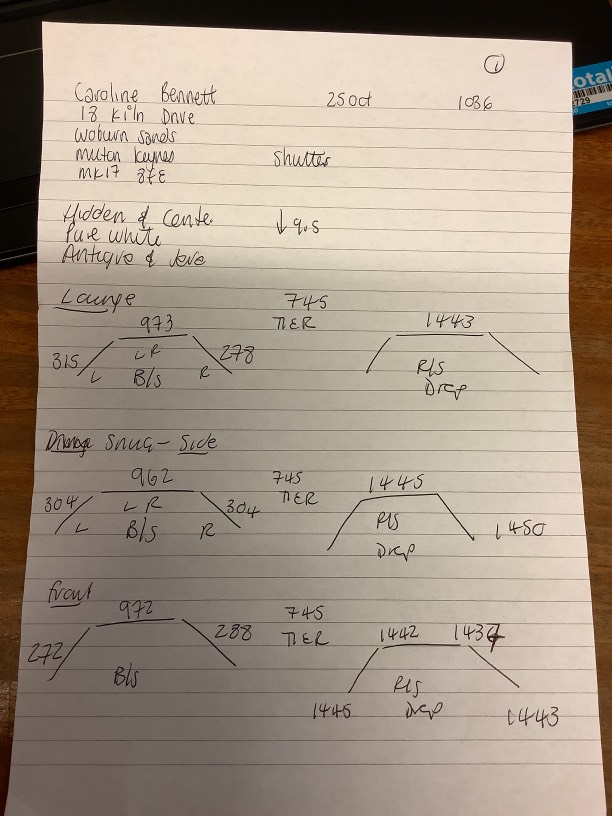 1
Caroline Bennett 25 Oct 1086
18 Kiln Drive
Woburn Sands
Milton Keynes Shutter
MK17 8FE
Hidden & Cente. ↓ 9.5
Pure white
Antique &
Lounge
973 745 1443
TIER
315 LR 278 R/S
L B/S R Drop
Snug - Side
962 745 1445
304 LR 304 TIER R/S
L B/S R Drop 1450
Front
972 745 1442
272 288 TIER
B/S R/S
1445 Drop 1443